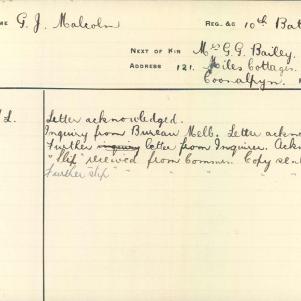 ME G. J. Malcolm REG. &c 10th Bat
NEXT OF KIN Mrs G.G. Bailey.
ADDRESS 121. Miles Cottages.
Coonalpyn.
Letter acknowledged.
Inquiry from Bureau Melb. Letter acknow
Further inquiry letter from Inquirer. Ackn
"Slip" received from Commr. Copy sent
Further slip " " " "